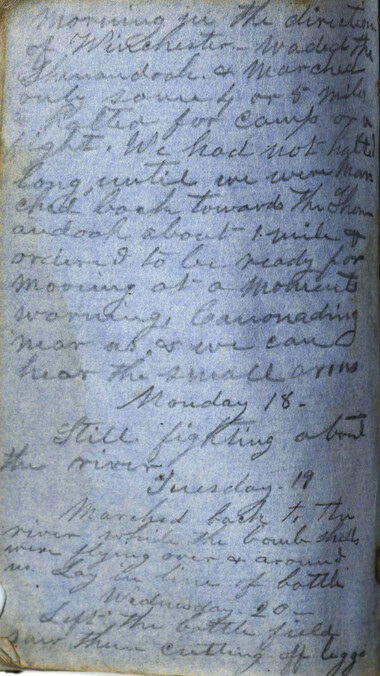 morning in the direction
of Winchester - Waded the
Shenandoah & Marched
only some 4 or 5 miles
& halted for camp or a
fight. We had not halted
long, until we were Mar
ched back towards the Shen
andoah about 1 mile &
ordered to be ready for
mooving at a moments
warning, Canonading
near us, & we can
hear the small arms
Monday 18 -
Still fighting about
the river
Tuesday. 19
Marched back to the
river while the bomb shells
were flying over & around
us. Lay in line of battle
Wednesday. 20 -
Left the battle field
saw them cutting off leggs